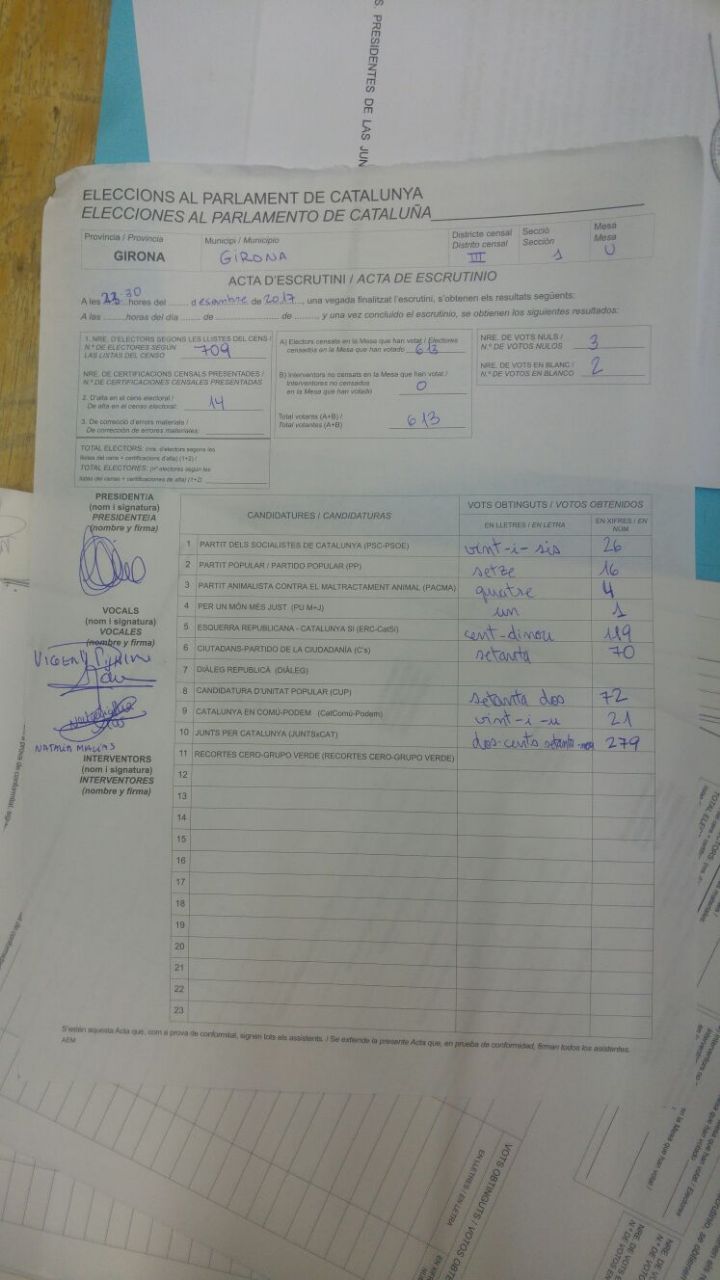 S PRESIDENTES DE LAS JUN
ELECCIONS AL PARLAMENT DE CATALUNYA
ELECCIONES AL PARLAMENTO DE CATALUÑA
Província / Provincia
GIRONA
Municipi / Municipio
GIRONA
Districte censal
Distrito censal
III
Secció
Sección
1
Mesa
Mesa
U
ACTA D'ESCRUTINI / ACTA DE ESCRUTINIO
A les 23 30 hores del ........ desembre de 2017, una vegada finalitzat l'escrutini, s'obtenen els resultats següents:
A las ........horas del día ....... de .................... de ........, y una vez concluido el escrutinio, se obtienen los siguientes resultados:
1. NRE. D'ELECTORS SEGONS LES LLISTES DEL CENS /
N.º DE ELECTORES SEGÚN
LAS LISTAS DEL CENSO 709
NRE. DE CERTIFICACIONS CENSALS PRESENTADES /
N.º DE CERTIFICACIONES CENSALES PRESENTADAS
2. D'alta en el cens electoral /
De alta en el censo electoral: 14
3. De correcció d'errors materials /
De corrección de errores materiales:
TOTAL ELECTORS: (nre. d'electors segons les
llistes del cens + certificacions d'alta) (1+2) /
TOTAL ELECTORES: (nº electores según las
listas del censo + certificaciones de alta) (1+2)
A) Electors censats en la Mesa que han votat / Electores
censados en la Mesa que han votado 613
B) Interventors no censats en la Mesa que han votat /
Interventores no censados
en la Mesa que han votado 0
Total votants (A+B) /
Total votantes (A+B) 613
NRE. DE VOTS NULS /
N.º DE VOTOS NULOS 3
NRE. DE VOTS EN BLANC /
N.º DE VOTOS EN BLANCO 2
PRESIDENT/A
(nom i signatura)
PRESIDENTE/A
(nombre y firma)
VOCALS
(nom i signatura)
VOCALES
(nombre y firma)
NATALIA MACIAS
INTERVENTORS
(nom i signatura)
INTERVENTORES
(nombre y firma)
CANDIDATURES / CANDIDATURAS
VOTS OBTINGUTS / VOTOS OBTENIDOS
EN LLETRES / EN LETRA
EN XIFRES / EN NÚM
1 PARTIT DELS SOCIALISTES DE CATALUNYA (PSC-PSOE) vint-i-sis 26
2 PARTIT POPULAR / PARTIDO POPULAR (PP) setze 16
3 PARTIT ANIMALISTA CONTRA EL MALTRACTAMENT ANIMAL (PACMA) quatre 4
4 PER UN MÓN MÉS JUST (PU M+J) un 1
5 ESQUERRA REPUBLICANA - CATALUNYA SI (ERC-CatSí) cent-dinou 119
6 CIUTADANS-PARTIDO DE LA CIUDADANÍA (C's) setanta 70
7 DIÀLEG REPUBLICÀ (DIÀLEG)
8 CANDIDATURA D'UNITAT POPULAR (CUP) setanta dos 72
9 CATALUNYA EN COMÚ-PODEM (CatComú-Podem) vint-i-u 21
10 JUNTS PER CATALUNYA (JUNTSxCAT) dos-cents setanta-nou 279
11 RECORTES CERO-GRUPO VERDE (RECORTES CERO-GRUPO VERDE)
12
13
14
15
16
17
18
19
20
21
22
23
S'estén aquesta Acta que, com a prova de conformitat, signen tots els assistents. / Se extiende la presente Acta que, en prueba de conformidad, firman todos los asistentes.
AEM
VOTS OBTINGUTS / VOTOS OBTE
EN LLETRES / EN LETRA